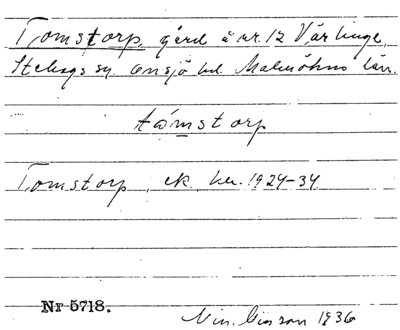 Tomstorp, gård å nr. 12 Värlinge,
Stehags sn. Onsjö hd. Malmöhus län.
tåmstorp
Tomstorp, ek. ka. 1924-34
Nr 5718.
1936